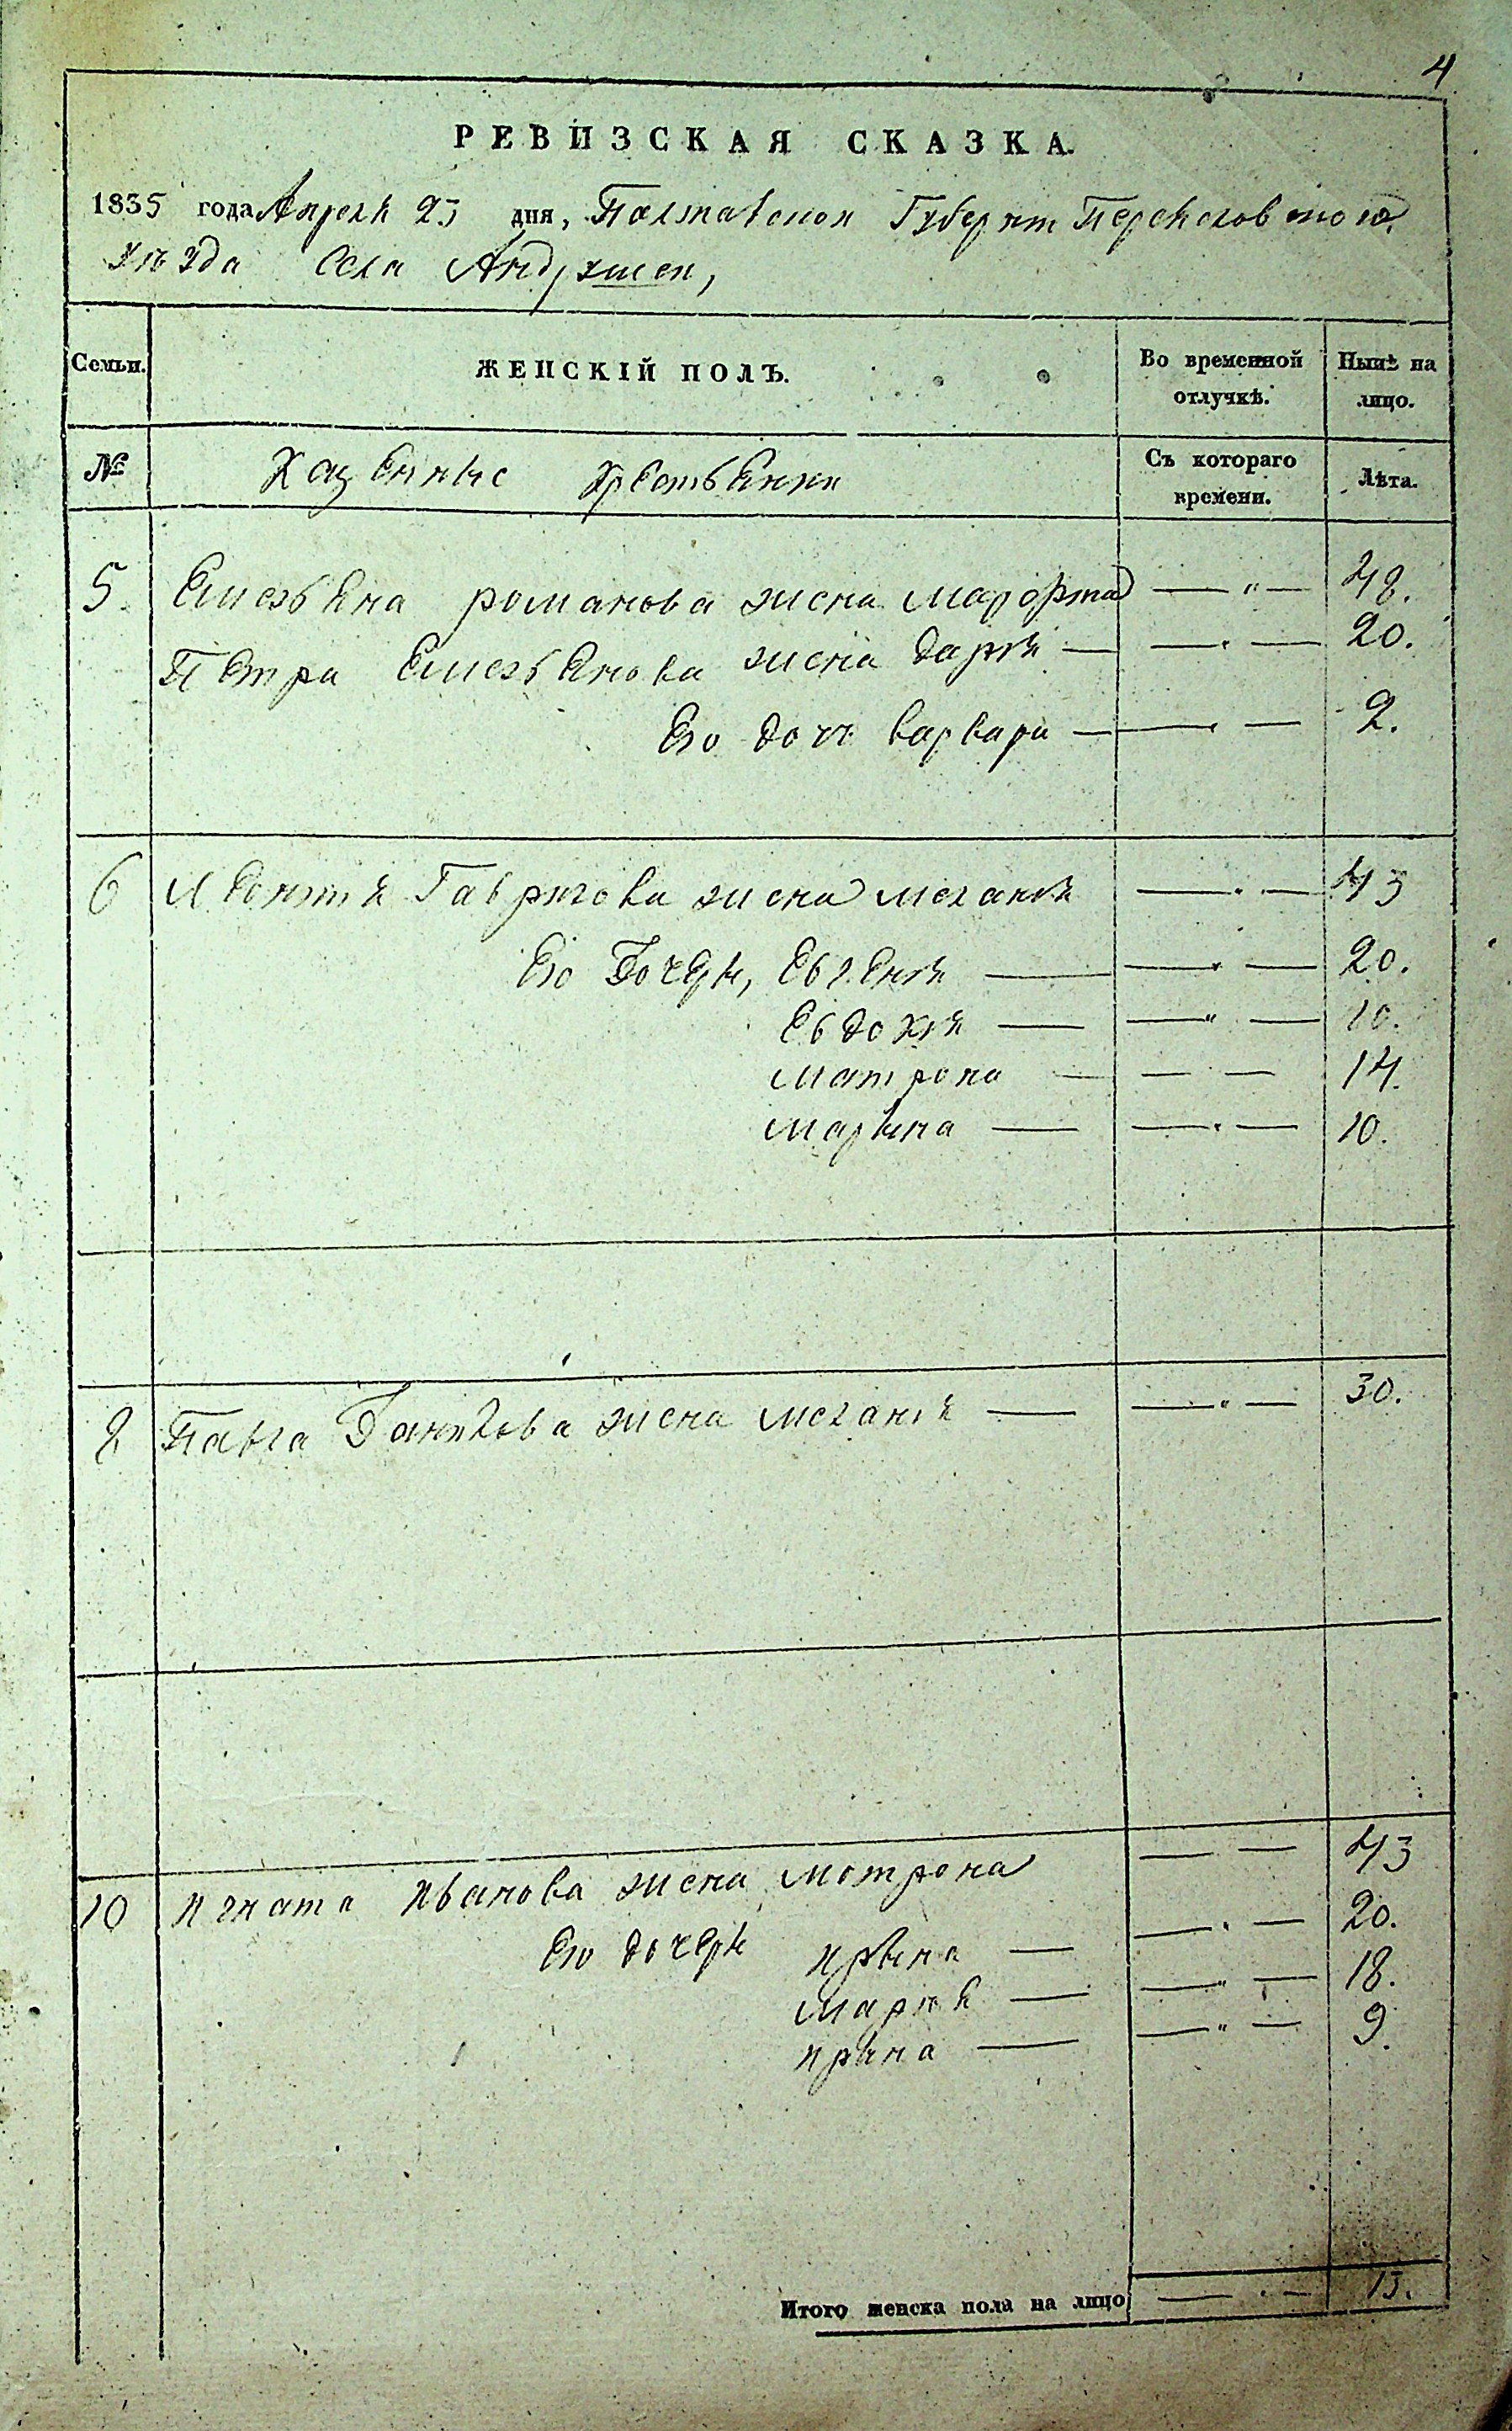 4
РЕВИЗСКАЯ СКАЗКА.
1835 года Апреля 25 дня, Полтавской Губернии Переяслов
уезда Села Андрушек,
Семьи. ЖЕНСКІЙ ПОЛЪ. Во временной отлучкѣ. Нынѣ на лицо.
№ Казенные Крестьянки Съ котораго времени. Лѣта.
5. Емельяна романова жена марфа — " — 48.
Петра Емельянова жена дарія — — " — 20.
Его дочь варвара — — " — 2.
6 Леонтия Гаврилова жена меланія — " — 43
Его Дочеры, Евгенія — — " — 20.
Евдокія — — " — 10.
матрона — — — 14.
марына — — " — 10.
Павла Данилова жена меланія — — " — 30.
10 игната иванова жена мотрона — — 43
Его дочеры ирына — — " — 20.
марія — — " — 18.
ирына — — " — 9.
Итого женска пола на лицо — " — 13.